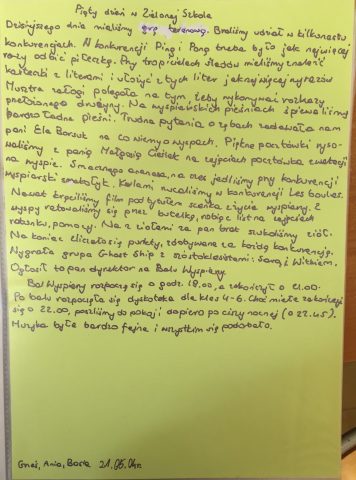 Piąty dzień w Zielonej Szkole
Dzisiejszego dnia mieliśmy grę terenową. Braliśmy udział w kilkunastu
konkurencjach. W konkurencji Ping i Pong trzeba było jak najwięcej
razy odbić piłeczkę. Przy tropicielach śladów mieliśmy znaleźć
karteczki z literami i ułożyć z tych liter jak najwięcej wyrazów
Musztra załogi polegała na tym, żeby wykonywać rozkazy
przeciwnego drużyny. Na wyspiańskich pieśniach śpiewaliśmy
bardzo ładne pieśni. Trudne pytania o rybach zadawała nam
pani Ela Borsuk na co wiemy o wyspach. Piękne pocztówki ryso-
waliśmy z panią Małgosią Cieślak na zajęciach pocztówka
na wyspie. Smacznego ananasa, na czas jedliśmy przy konkurencji
wyspiarski smakołyk. Kulami rzucaliśmy w konkurencji Les boules.
Nawet kręciliśmy film pod tytułem scenka z życia wyspiarzy. Z
wyspy ratowaliśmy się przez butelkę, robiąc list na zajęciach
ratunku, pomocy. Na z ziołami za pan brat szukaliśmy ziół.
Na koniec zliczało się punkty, zdobywane za każdą konkurencję.
Wygrała grupa Ghost Ship z szóstoklasistami: Sarą i Witkiem.
Ogłosił to pan dyrektor na Balu Wyspiarzy.
Bal Wyspiarzy rozpoczął się o godz. 18.00, a zakończył o 21.00.
Po balu rozpoczęła się dyskoteka dla klas 4-6. Choć miała zakończyć
się o 22.00, poszliśmy do pokoi dopiero po ciszy nocnej (o 22.45).
Muzyka była bardzo fajna i wszystkim się podobało.
Ania, 21.05.